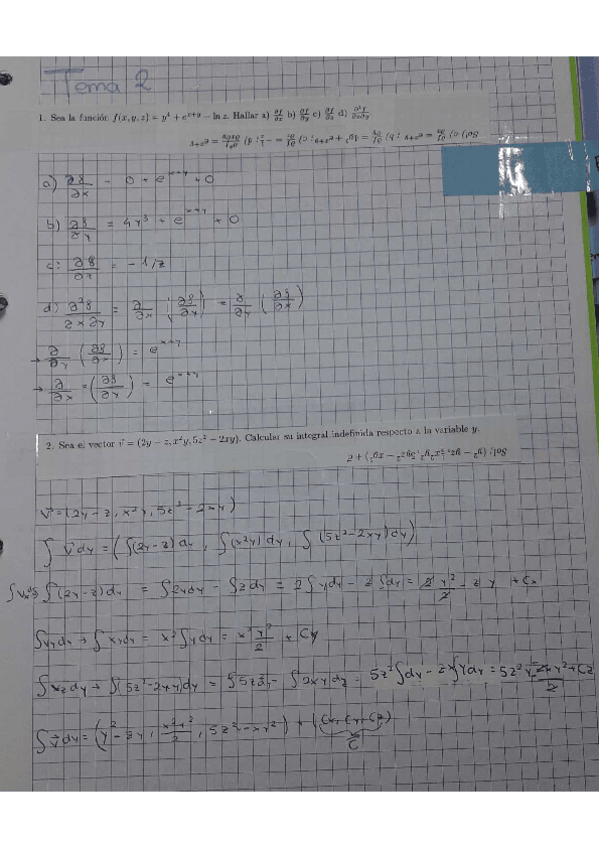 Tema 2
1. Sea la función f(x, y, z) = y⁴ + e^(x+y) − ln z. Hallar a) ∂f/∂x b) ∂f/∂y c) ∂f/∂z d) ∂²f/∂x∂y
a) ∂f/∂x = 0 + e^(x+y) + 0
b) ∂f/∂y = 4y³ + e^(x+y) + 0
c: ∂f/∂z = - 1/z
d) ∂²f/∂x∂y = ∂/∂x (∂f/∂y) = ∂/∂y (∂f/∂x)
→ ∂/∂y (∂f/∂x) = e^(x+y)
→ ∂/∂x = (∂f/∂y) = e^(x+y)
2. Sea el vector v⃗ = (2y − z, x²y, 5z² − 2xy). Calcular su integral indefinida respecto a la variable y.
Sol: (y² − yz, ½x²y², 5yz² − xy²) + c⃗
v⃗=(2y-z, x²y, 5z²-2xy)
∫v⃗dy = (∫(2y-z)dy, ∫(x²y)dy, ∫(5z²-2xy)dy)
∫(2y-z)dy = ∫2ydy - ∫zdy = 2∫ydy - z∫dy = 2 y²/2 - zy + Cx
= x²∫ydy = x² y²/2 + Cy
∫(5z²-2xy)dy = 5z²∫dy - 2x∫ydy = 5z²y - 2xy²/2 + Cz
∫v⃗dy = (y² - zy, x²y²/2, 5z² - xy²) + (Cx, Cy, Cz)
C⃗